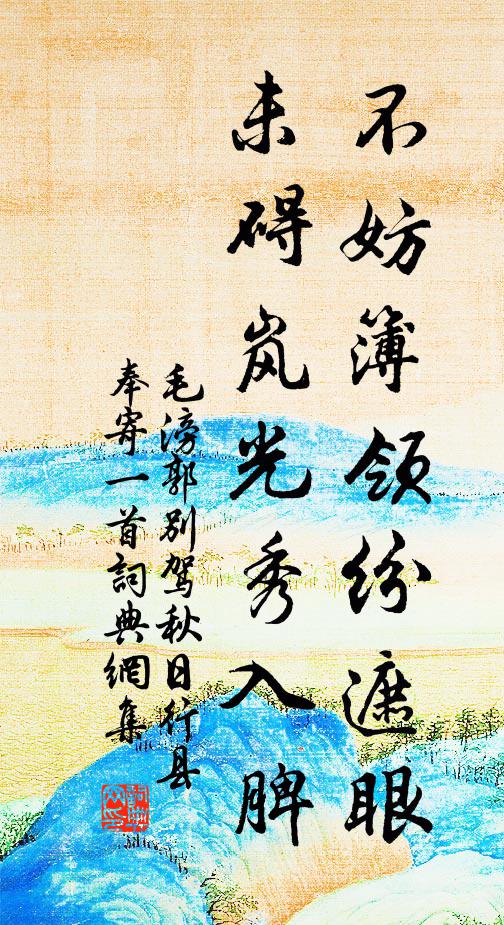 不妨簿领纷遮眼
未碍岚光秀入脾
毛滂郭别驾秋日行县
奉寄一首詞典網集